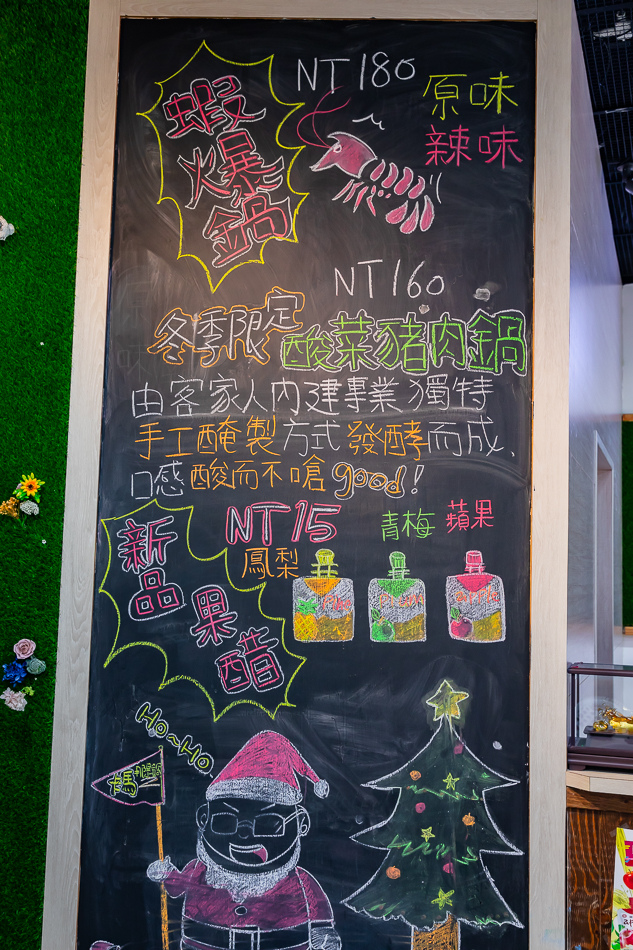 蝦爆鍋
NT180
原味
辣味
NT160
冬季限定
酸菜豬肉鍋
由客家人內建事業獨特
手工醃製方式發酵而成、
口感酸而不嗆good!
新品
果醋
NT15
鳳梨
青梅
蘋果
Ho~Ho